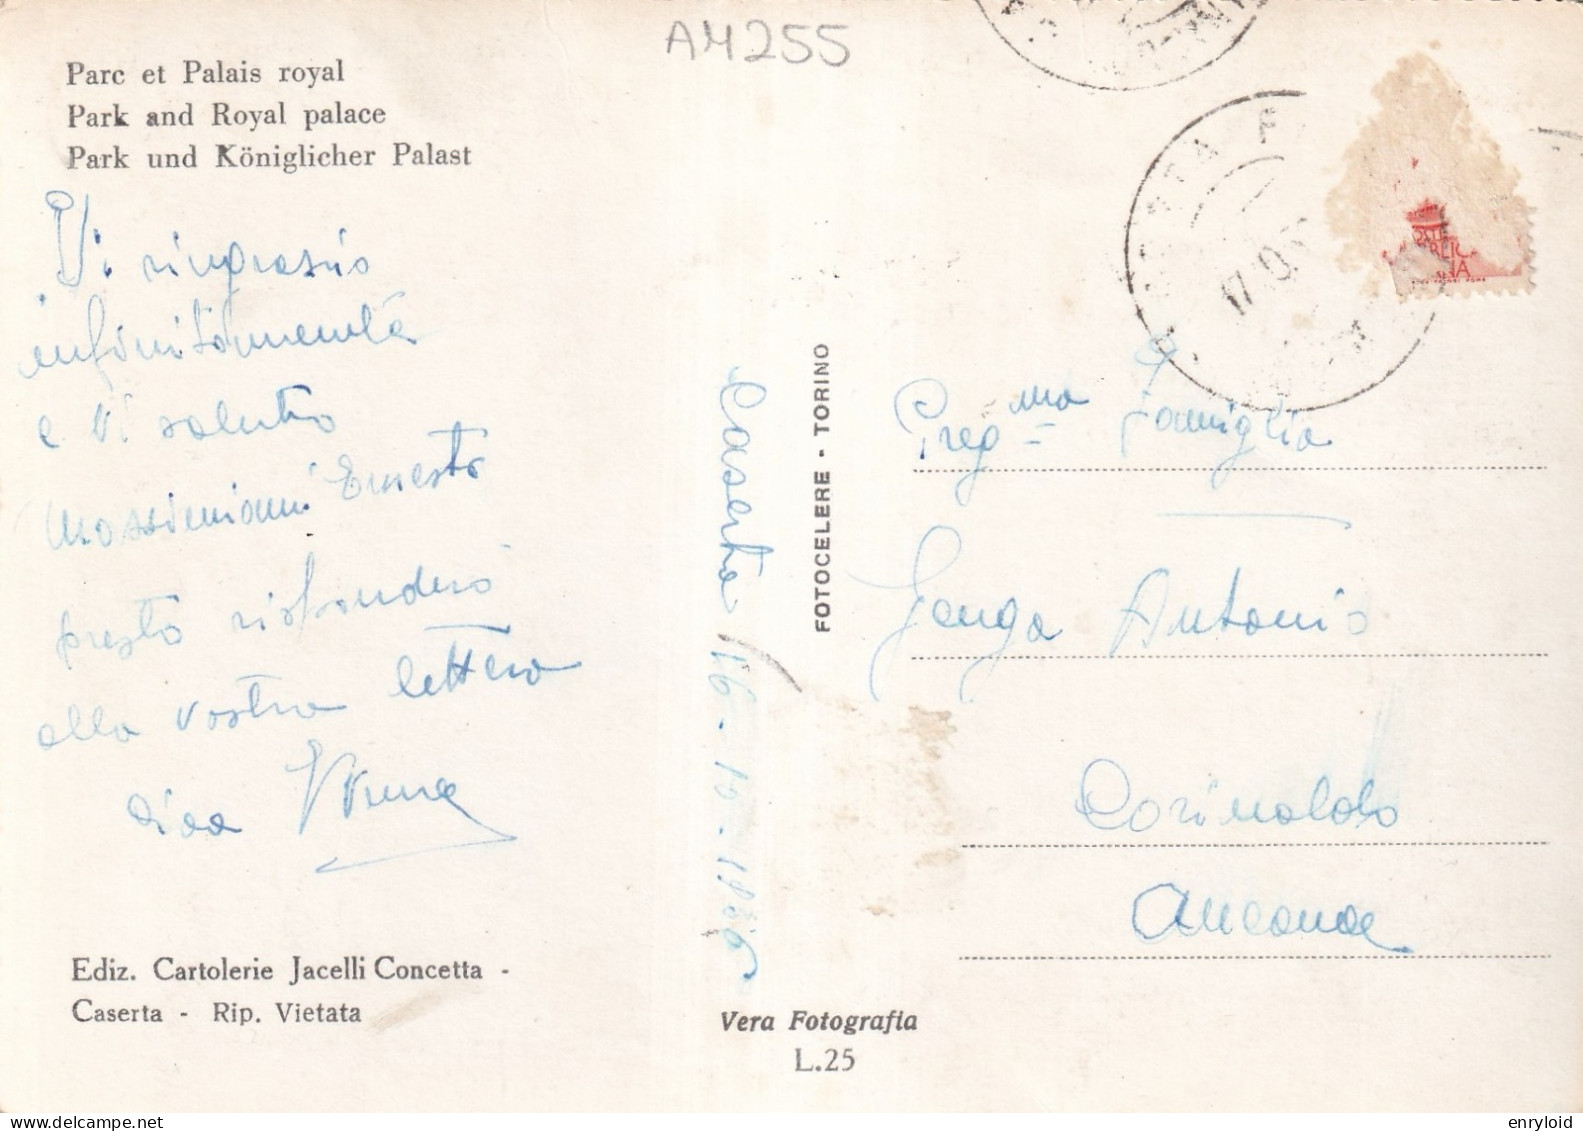 AM255
Parc et Palais royal
Park and Royal palace
Park und Königlicher Palast
Vi ringrazio
infinitamente
e Vi saluto
Massimiani Ernesto
presto risponderò
alla vostra lettera
Ediz. Cartolerie Jacelli Concetta -
Caserta - Rip. Vietata
Caserta 16-10-1956
FOTOCELERE - TORINO
Vera Fotografia
L.25
CASERTA F
17.10
Preg ma Famiglia
Genga Antonio
Corinaldo
Ancona
enryloid